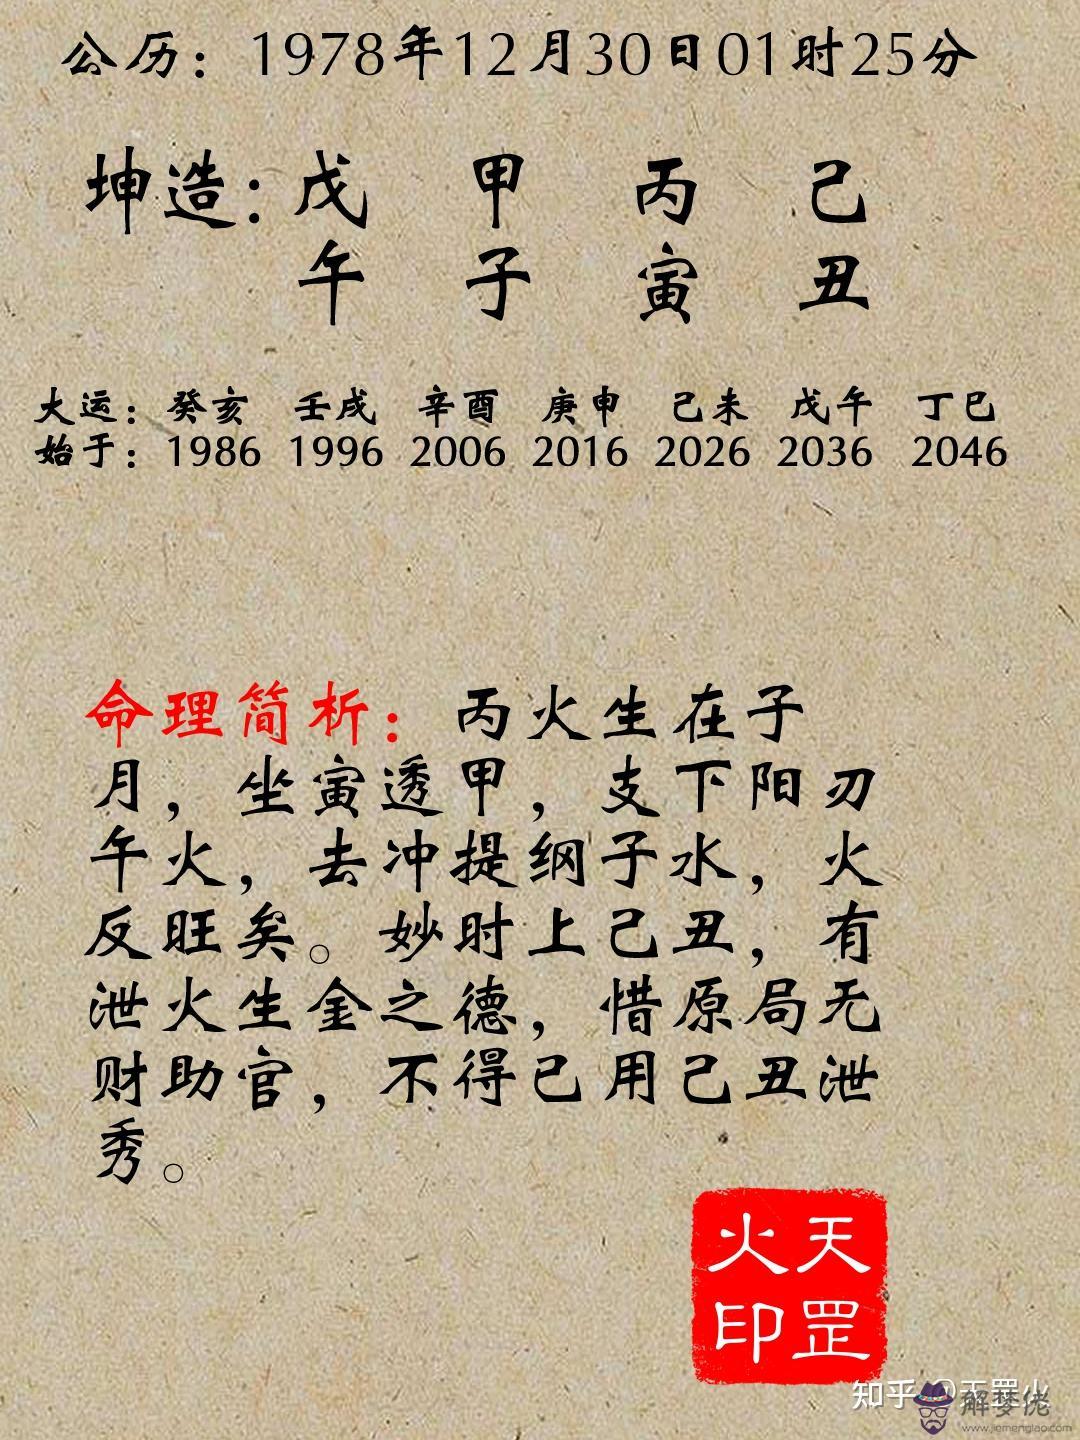 公历：1978年12月30日01时25分
坤造：戊 甲 丙 己
午 子 寅 丑
大运：癸亥 壬戌 辛酉 庚申 己未 戊午 丁巳
始于：1986 1996 2006 2016 2026 2036 2046
命理简析：丙火生在子
月，坐寅透甲，支下阳刃
午火，去冲提纲子水，火
反旺矣。妙时上己丑，有
泄火生金之德，惜原局无
财助官，不得已用己丑泄
秀。
天罡
火印
知乎 @天罡火
解梦佬
www.jiemenglao.com